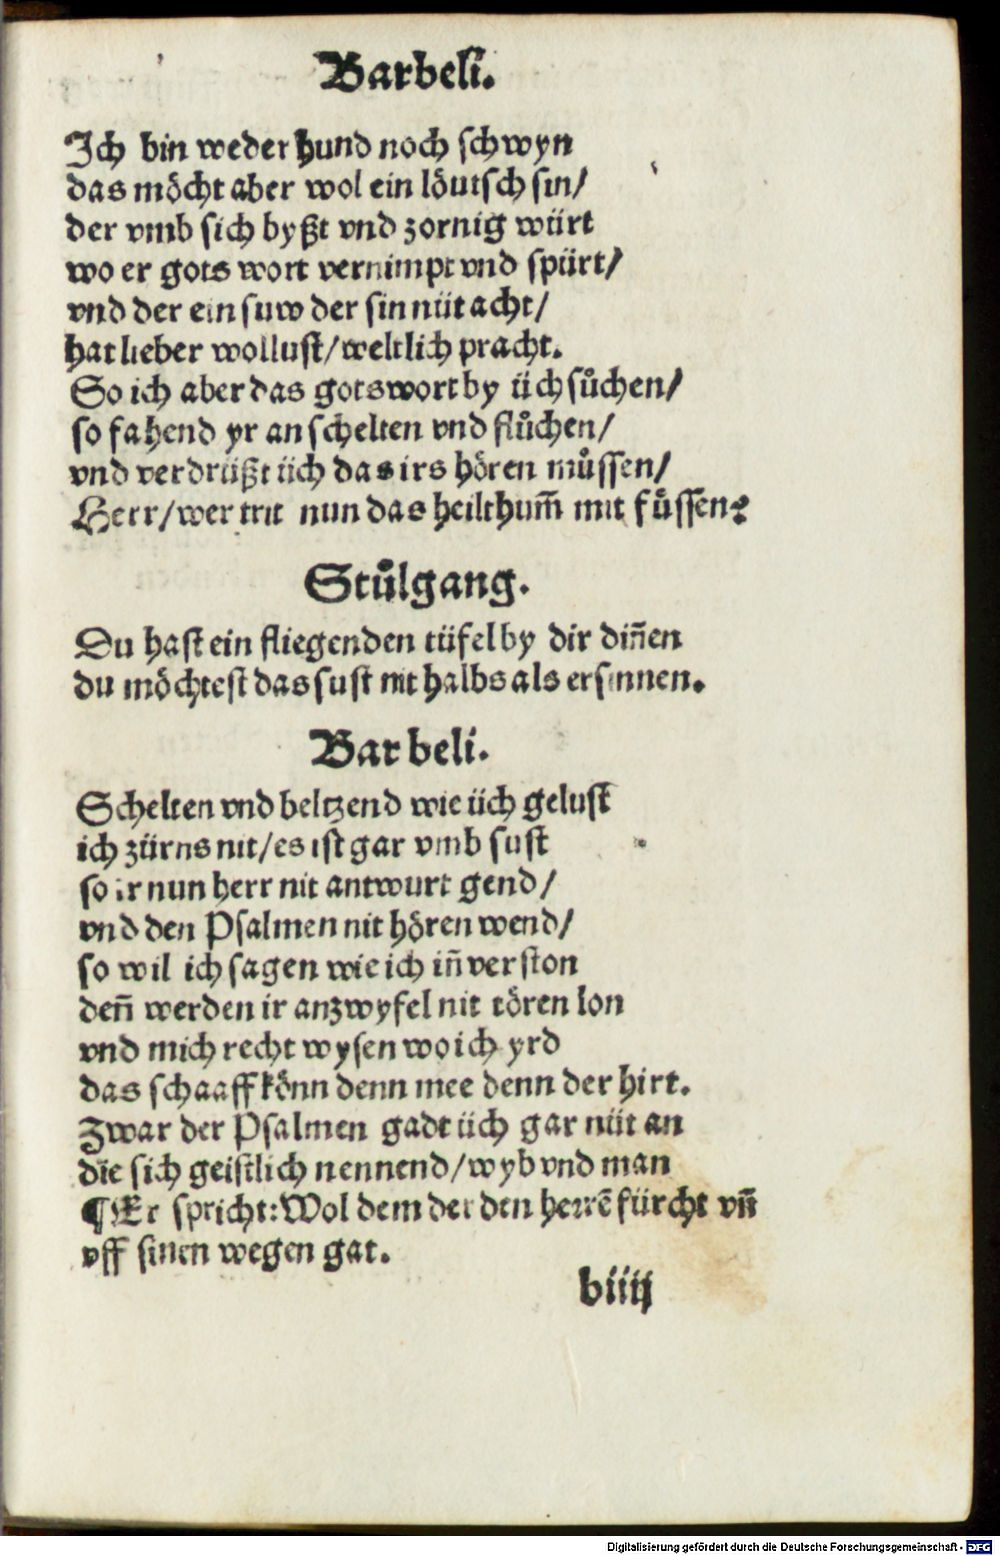 Barbeli.
Ich bin weder hund noch schwyn
das möcht aber wol ein löutsch sin/
der vmb sich byßt vnd zornig würt
wo er gots wort vernimpt vnd spürt/
vnd der ein suw der sin nüt acht/
hat lieber wollust/weltlich pracht.
So ich aber das gotswort by üch sůchen/
so fahend yr an schelten vnd flůchen/
vnd verdrüßt üch das irs hören můssen/
Herr/wer trit nun das heilthum̄ mit fůssen?
Stůlgang.
Du hast ein fliegenden tüfel by dir din̄en
du möchtest das sust nit halbs als ersinnen.
Barbeli.
Schelten vnd beltzend wie üch gelust
ich zürns nit/es ist gar vmb sust
so ir nun herr nit antwurt gend/
vnd den Psalmen nit hören wend/
so wil ich sagen wie ich in̄ verston
den̄ werden ir anzwyfel nit tören lon
vnd mich recht wysen wo ich yrd
das schaaff könn denn mee denn der hirt.
Zwar der Psalmen gadt üch gar nüt an
die sich geistlich nennend/wyb vnd man
¶Er spricht: Wol dem der den herrē fürcht vn̄
vff sinen wegen gat.
biiij
Digitalisierung gefördert durch die Deutsche Forschungsgemeinschaft - DFG